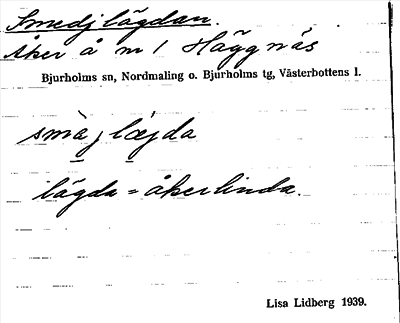 Smedjlägdan.
Åker å m/ Häggnäs
Bjurholms sn, Nordmaling o. Bjurholms tg, Västerbottens l.
smäjlæjda
lägda = åkerlinda.
Lisa Lidberg 1939.